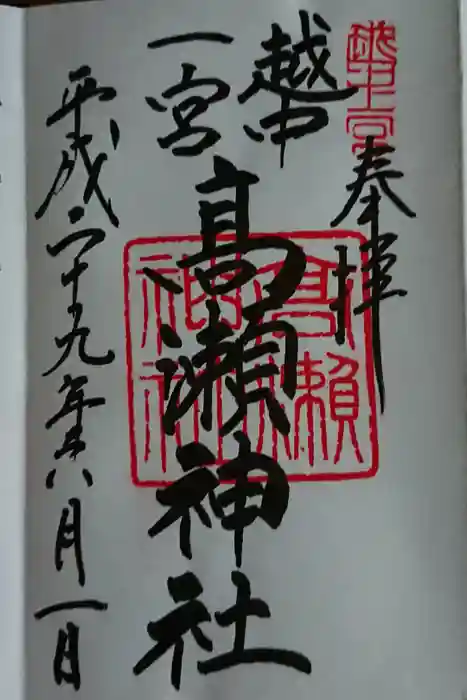 奉拝
越中
一宮
髙瀬神社
平成二十九年六月一日
越中一宮
髙瀬神社